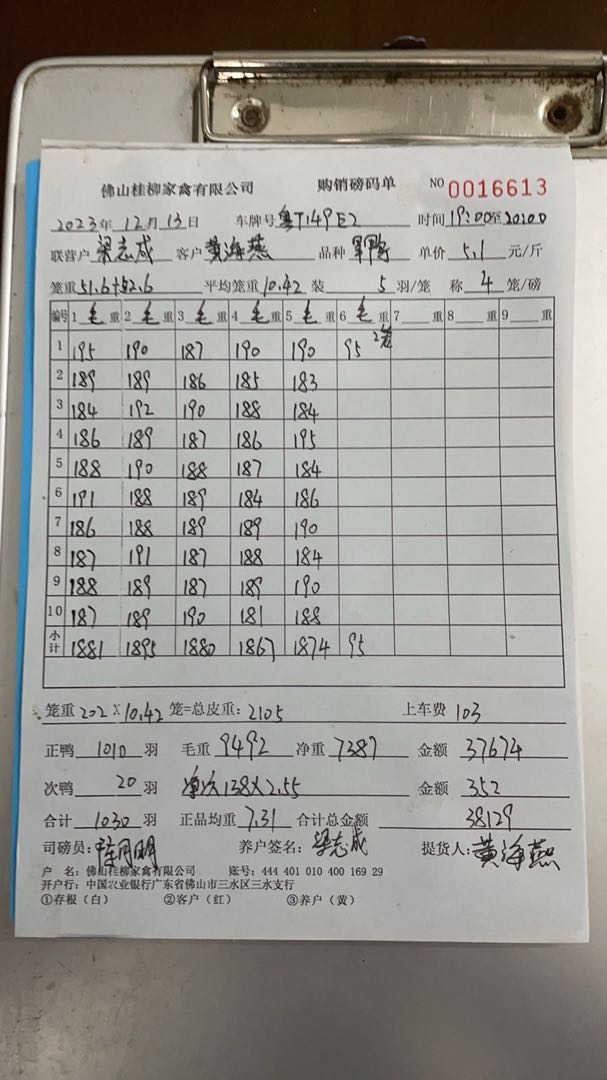 佛山桂柳家禽有限公司 购销磅码单 NO 0016613
2023年12月13日 车牌号粤T149E2 时间19:00至20100
联营户梁志成 客户黄海燕 品种 单价5.1元/斤
笼重51.6+52.6 平均笼重10.42 装5羽/笼 称4笼/磅
编号 1毛重 2毛重 3毛重 4毛重 5毛重 6毛重 7重 8重 9重
1 195 190 187 190 190 95 2笼
2 189 189 186 185 183
3 184 192 190 188 184
4 186 189 187 186 195
5 188 190 188 187 184
6 191 188 189 184 186
7 186 188 189 189 190
8 187 191 187 188 184
9 188 189 187 189 190
10 187 189 190 181 188
小计 1881 1895 1880 1867 1874 95
笼重202×10.42笼=总皮重:2105 上车费103
正鸭1010羽 毛重9492 净重7387 金额37674
次鸭20羽 138×2.55 金额352
合计1030羽 正品均重7.31 合计总金额38129
司磅员: 养户签名:梁志成 提货人:黄海燕
户 名:佛山桂柳家禽有限公司 账号:444 401 010 400 169 29
开户行:中国农业银行广东省佛山市三水区三水支行
①存根(白) ②客户(红) ③养户(黄)